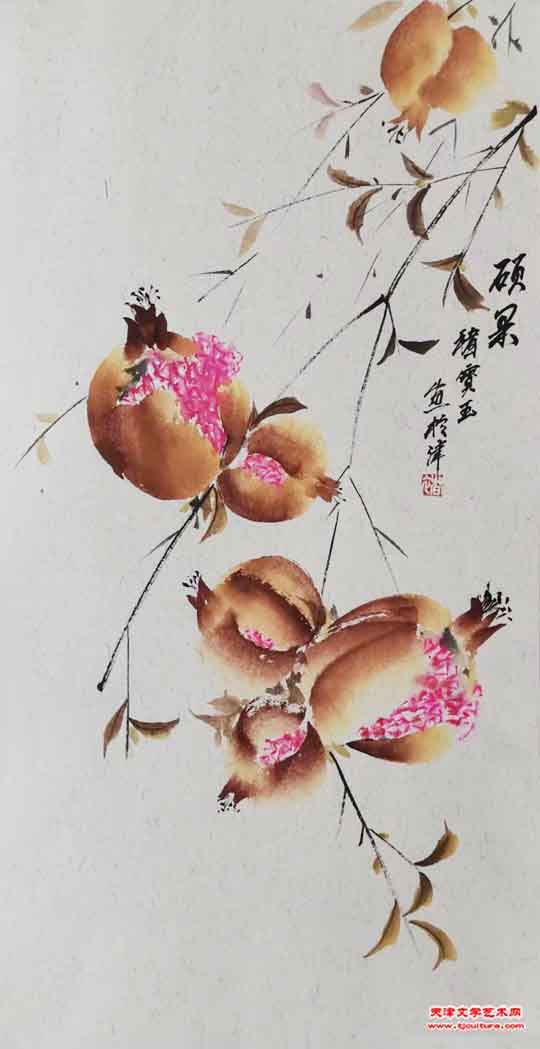 硕果
褚宝玉
画於津
天津文学艺术网
www.tjculture.com